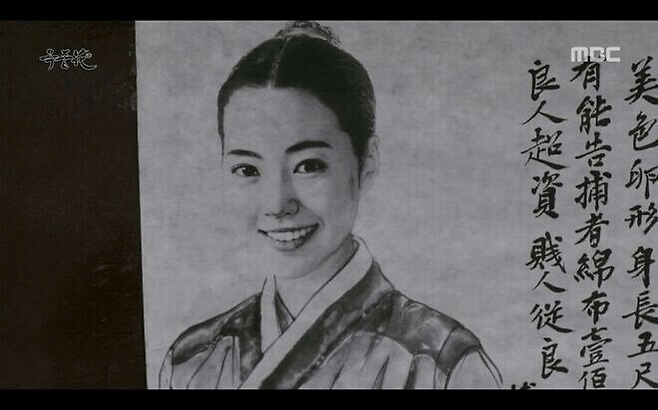 옥중花
MBC
美色卵形身長五尺
有能告捕者綿布壹佰
良人超資 賤人從良